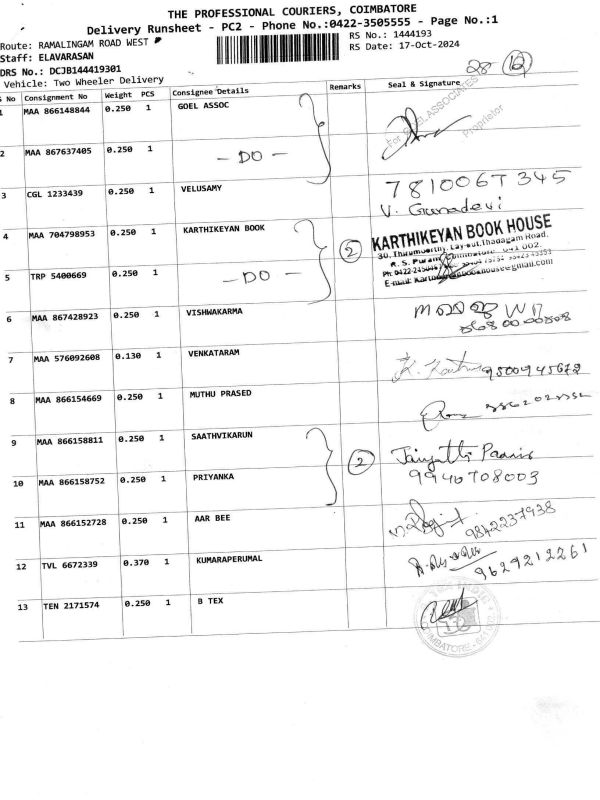 THE PROFESSIONAL COURIERS, COIMBATORE
Delivery Runsheet - PC2 - Phone No.:0422-3505555 - Page No.:1
Route: RAMALINGAM ROAD WEST
RS No.: 1444193
Staff: ELAVARASAN
RS Date: 17-Oct-2024
DRS No.: DCJB144419301
Vehicle: Two Wheeler Delivery
28 12
S No Consignment No Weight PCS Consignee Details Remarks Seal & Signature
1 MAA 866148844 0.250 1 GOEL ASSOC
For GOEL ASSOCIATES
Proprietor
2 MAA 867637405 0.250 1 - DO -
3 CGL 1233439 0.250 1 VELUSAMY 7810067345
V. Gunadevi
4 MAA 704798953 0.250 1 KARTHIKEYAN BOOK 2
KARTHIKEYAN BOOK HOUSE
30, Thirumoorthy Lay-out, Thadagam Road,
R. S. Puram, Coimbatore - 641 002.
5 TRP 5400669 0.250 1 - DO -
6 MAA 867428923 0.250 1 VISHWAKARMA
7 MAA 576092608 0.130 1 VENKATARAM 9500945672
8 MAA 866154669 0.250 1 MUTHU PRASED
9 MAA 866158811 0.250 1 SAATHVIKARUN 2
10 MAA 866158752 0.250 1 PRIYANKA 9940708003
11 MAA 866152728 0.250 1 AAR BEE 9842237938
12 TVL 6672339 0.370 1 KUMARAPERUMAL 9629212261
13 TEN 2171574 0.250 1 B TEX